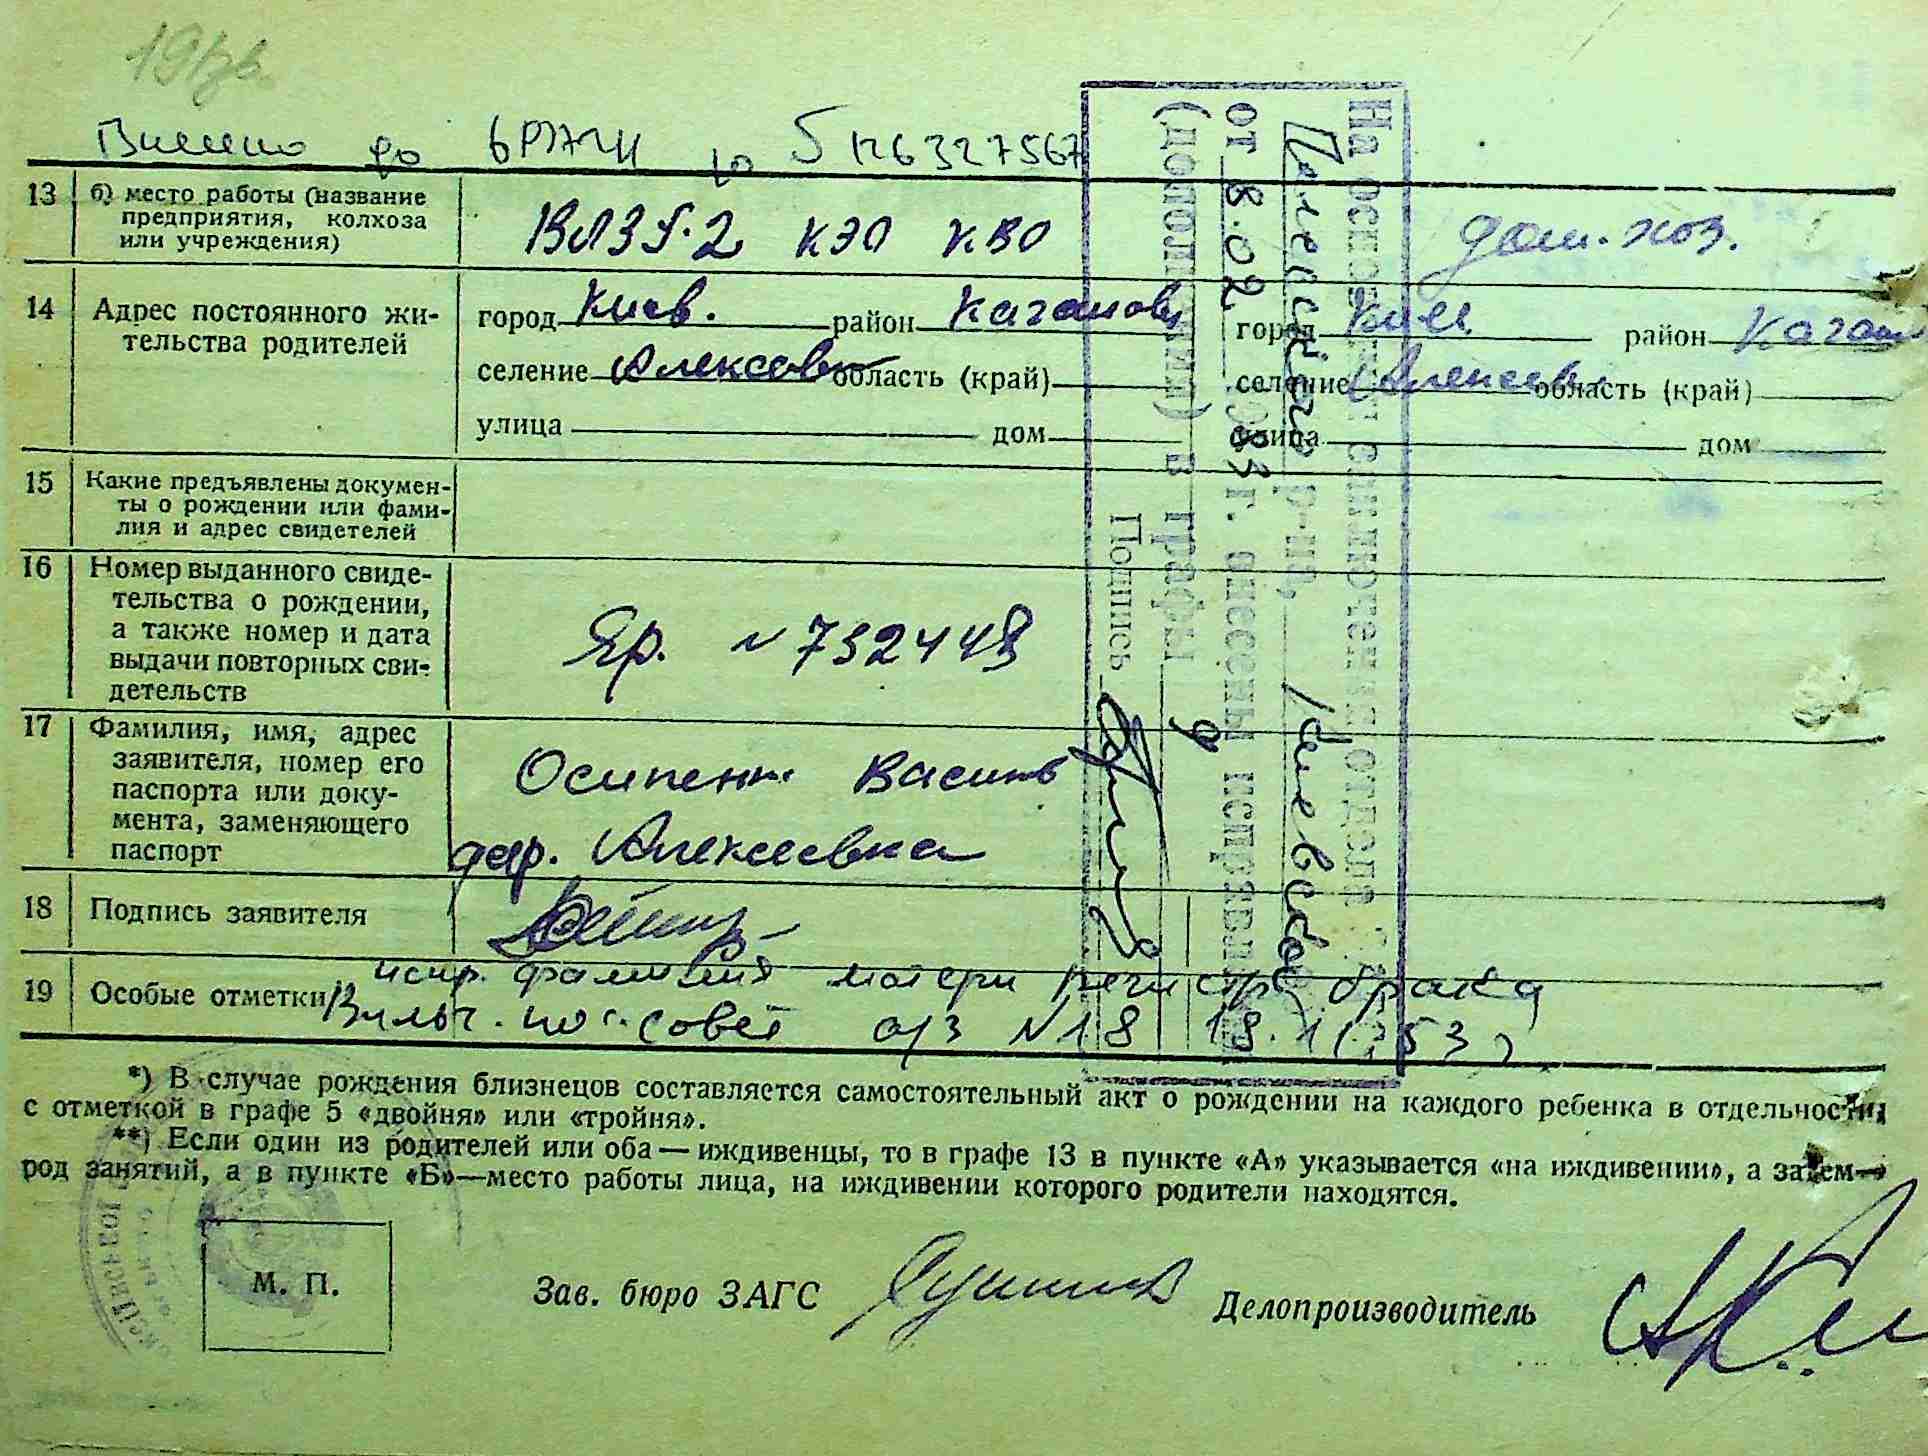 до 5126327567
13 б) место работы (название
предприятия, колхоза
или учреждения)
КЭО КВО
дом. хоз.
14 Адрес постоянного жи-
тельства родителей
город Киев. район Каганов
город Киев район Каган
селение Алексеевк область (край)
селение область (край)
улица дом
улица дом
15 Какие предъявлены докумен-
ты о рождении или фами-
лия и адрес свидетелей
16 Номер выданного свиде-
тельства о рождении,
а также номер и дата
выдачи повторных сви-
детельств
N 732449
17 Фамилия, имя, адрес
заявителя, номер его
паспорта или доку-
мента, заменяющего
паспорт
Осипенк
Алексеевка
18 Подпись заявителя
19 Особые отметки
испр. фамилия матери регистр. брака
пос. совет а/з N 18 18.
На основании заключения отдела
р-на,
от 8.02 1983 г. внесены исправления
(дополнения) в графы 9
Подпись
*) В случае рождения близнецов составляется самостоятельный акт о рождении на каждого ребенка в отдельности
с отметкой в графе 5 «двойня» или «тройня».
**) Если один из родителей или оба — иждивенцы, то в графе 13 в пункте «А» указывается «на иждивении», а затем—
род занятий, а в пункте «Б»—место работы лица, на иждивении которого родители находятся.
М. П.
Зав. бюро ЗАГС
Делопроизводитель